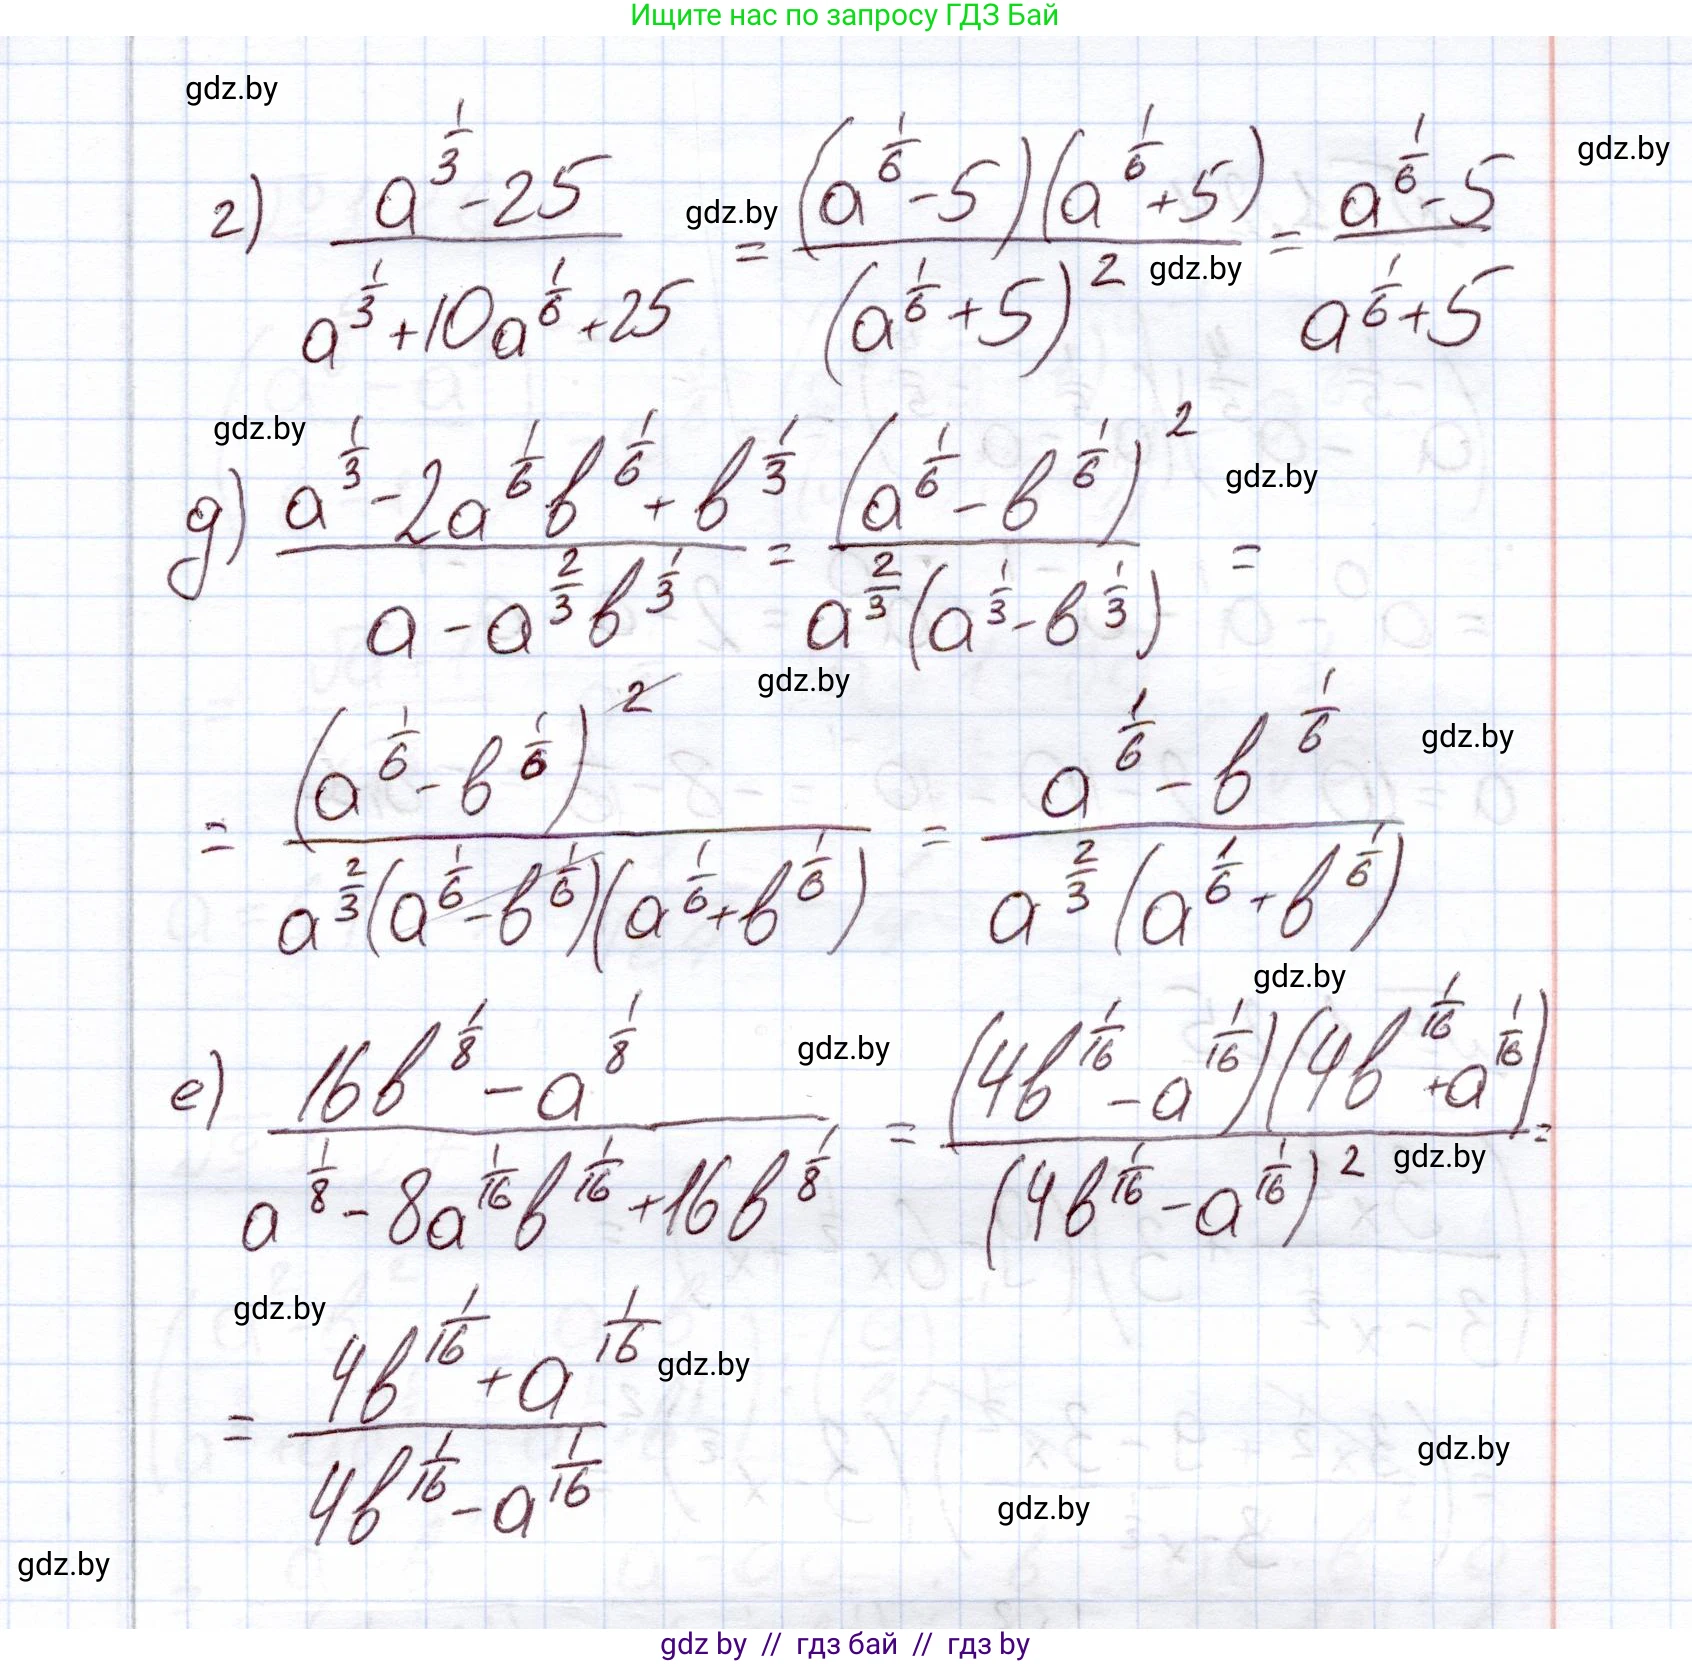 Ищите нас по запросу ГДЗ Бай
gdz.by
gdz.by
г) \frac{a^{\frac{1}{3}}-25}{a^{\frac{1}{3}}+10a^{\frac{1}{6}}+25} = \frac{(a^{\frac{1}{6}}-5)(a^{\frac{1}{6}}+5)}{(a^{\frac{1}{6}}+5)^2} = \frac{a^{\frac{1}{6}}-5}{a^{\frac{1}{6}}+5}
gdz.by
gdz.by
gdz.by
д) \frac{a^{\frac{1}{3}}-2a^{\frac{1}{6}}b^{\frac{1}{6}}+b^{\frac{1}{3}}}{a-a^{\frac{2}{3}}b^{\frac{1}{3}}} = \frac{(a^{\frac{1}{6}}-b^{\frac{1}{6}})^2}{a^{\frac{2}{3}}(a^{\frac{1}{3}}-b^{\frac{1}{3}})} =
gdz.by
gdz.by
gdz.by
= \frac{(a^{\frac{1}{6}}-b^{\frac{1}{6}})^2}{a^{\frac{2}{3}}(a^{\frac{1}{6}}-b^{\frac{1}{6}})(a^{\frac{1}{6}}+b^{\frac{1}{6}})} = \frac{a^{\frac{1}{6}}-b^{\frac{1}{6}}}{a^{\frac{2}{3}}(a^{\frac{1}{6}}+b^{\frac{1}{6}})}
gdz.by
gdz.by
е) \frac{16b^{\frac{1}{8}}-a^{\frac{1}{8}}}{a^{\frac{1}{8}}-8a^{\frac{1}{16}}b^{\frac{1}{16}}+16b^{\frac{1}{8}}} = \frac{(4b^{\frac{1}{16}}-a^{\frac{1}{16}})(4b^{\frac{1}{16}}+a^{\frac{1}{16}})}{(4b^{\frac{1}{16}}-a^{\frac{1}{16}})^2} =
gdz.by
gdz.by
gdz.by
= \frac{4b^{\frac{1}{16}}+a^{\frac{1}{16}}}{4b^{\frac{1}{16}}-a^{\frac{1}{16}}}
gdz.by
gdz.by
gdz.by
gdz by // гдз бай // гдз by